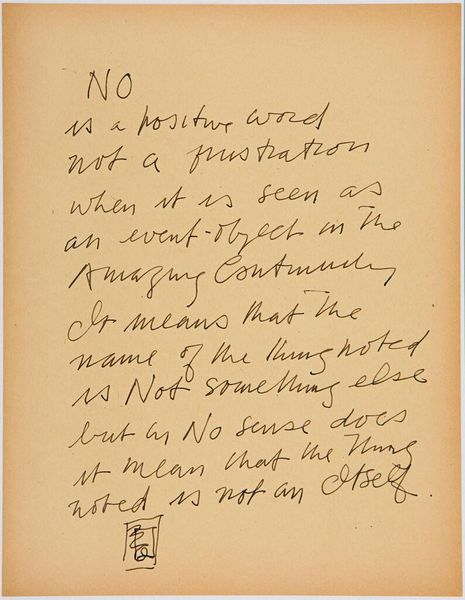 NO
is a positive word
not a frustration
when it is seen as
an event-object in The
Amazing Continuity
It means that the
name of the thing noted
is Not something else
but in No sense does
it mean that the Thing
noted is not an Itself.